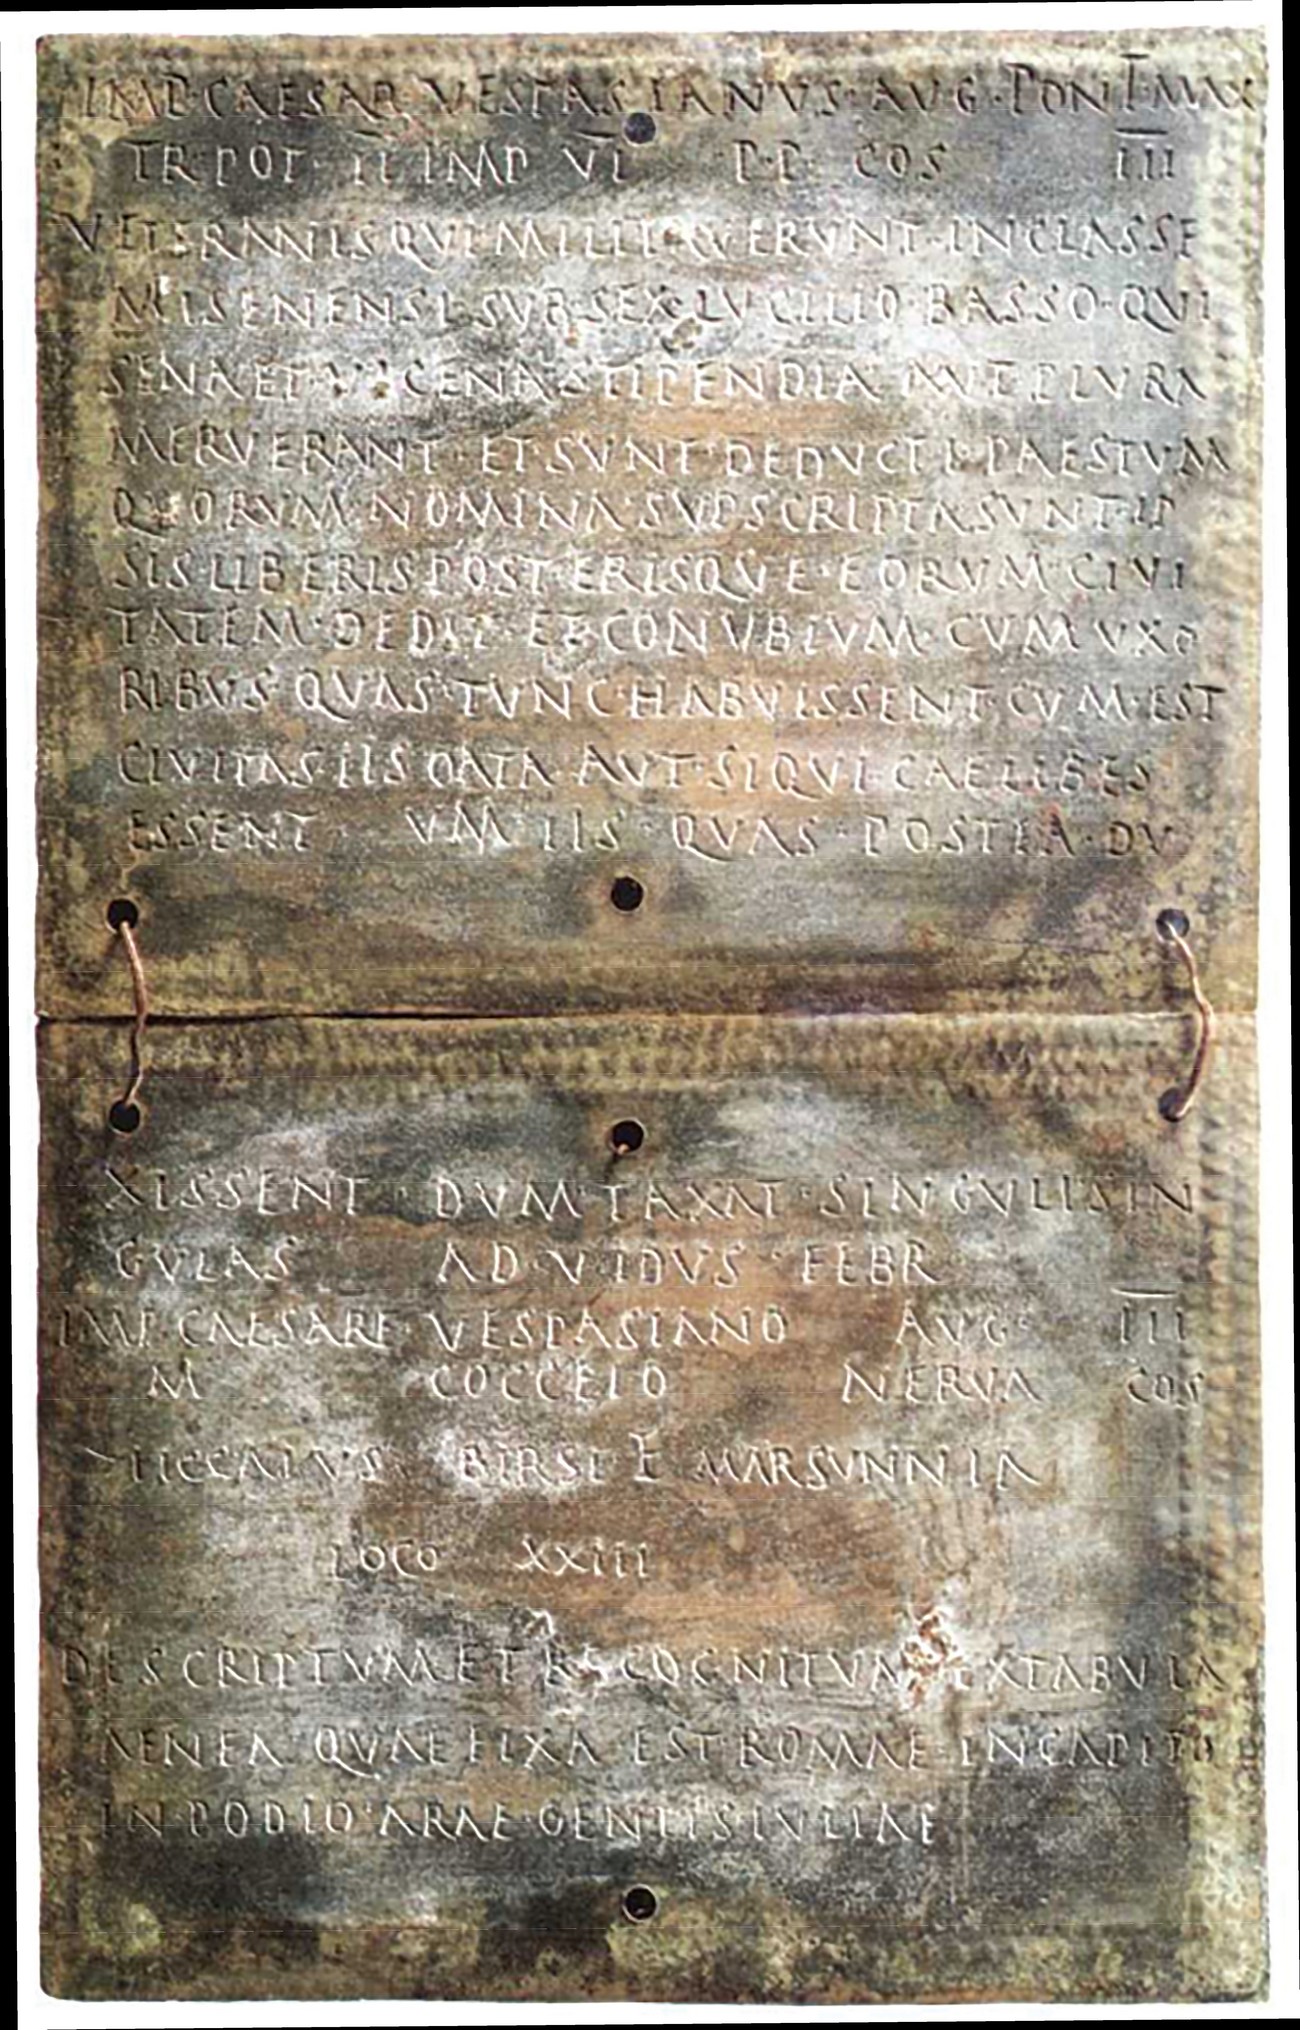 IMP·CAESAR VESPASIANUS·AVG·PONT·MAX
TR·POT· II IMP VI P·P· COS III
VETERANIS QVI MILITAVERVNT·IN CLASSE
MISENENSI·SVB·SEX·LVCILIO·BASSO·QVI
SENA ET VICENA STIPENDIA AVT PLVRA
MERVERANT · ET·SVNT·DEDVCTI·PAESTVM
QVORVM·NOMINA·SVPSCRIPTA SVNT·IP
SIS·LIBERIS POSTERISQVE·EORVM·CIVI
TATEM·DEDIT·ET·CONVBIVM·CVM VXO
RIBVS·QVAS·TVNC·HABVISSENT·CVM·EST
CIVITAS·IIS DATA·AVT·SI QVI·CAELIBES
ESSENT VM IIS·QVAS·POSTEA·DV
XISSENT · DVM TAXAT·SINGVLI SIN
GVLAS AD·V·IDVS·FEBR
IMP·CAESARE VESPASIANO AVG· III
M COCCEIO NERVA COS
BIRSI F MARSUNNIA
LOCO XXIII
DESCRIPTVM ET RECOGNITVM EX TABVLA
AENEA QVAE FIXA EST ROMAE·IN CAPITO
IN·PODIO·ARAE·GENTIS IVLIAE